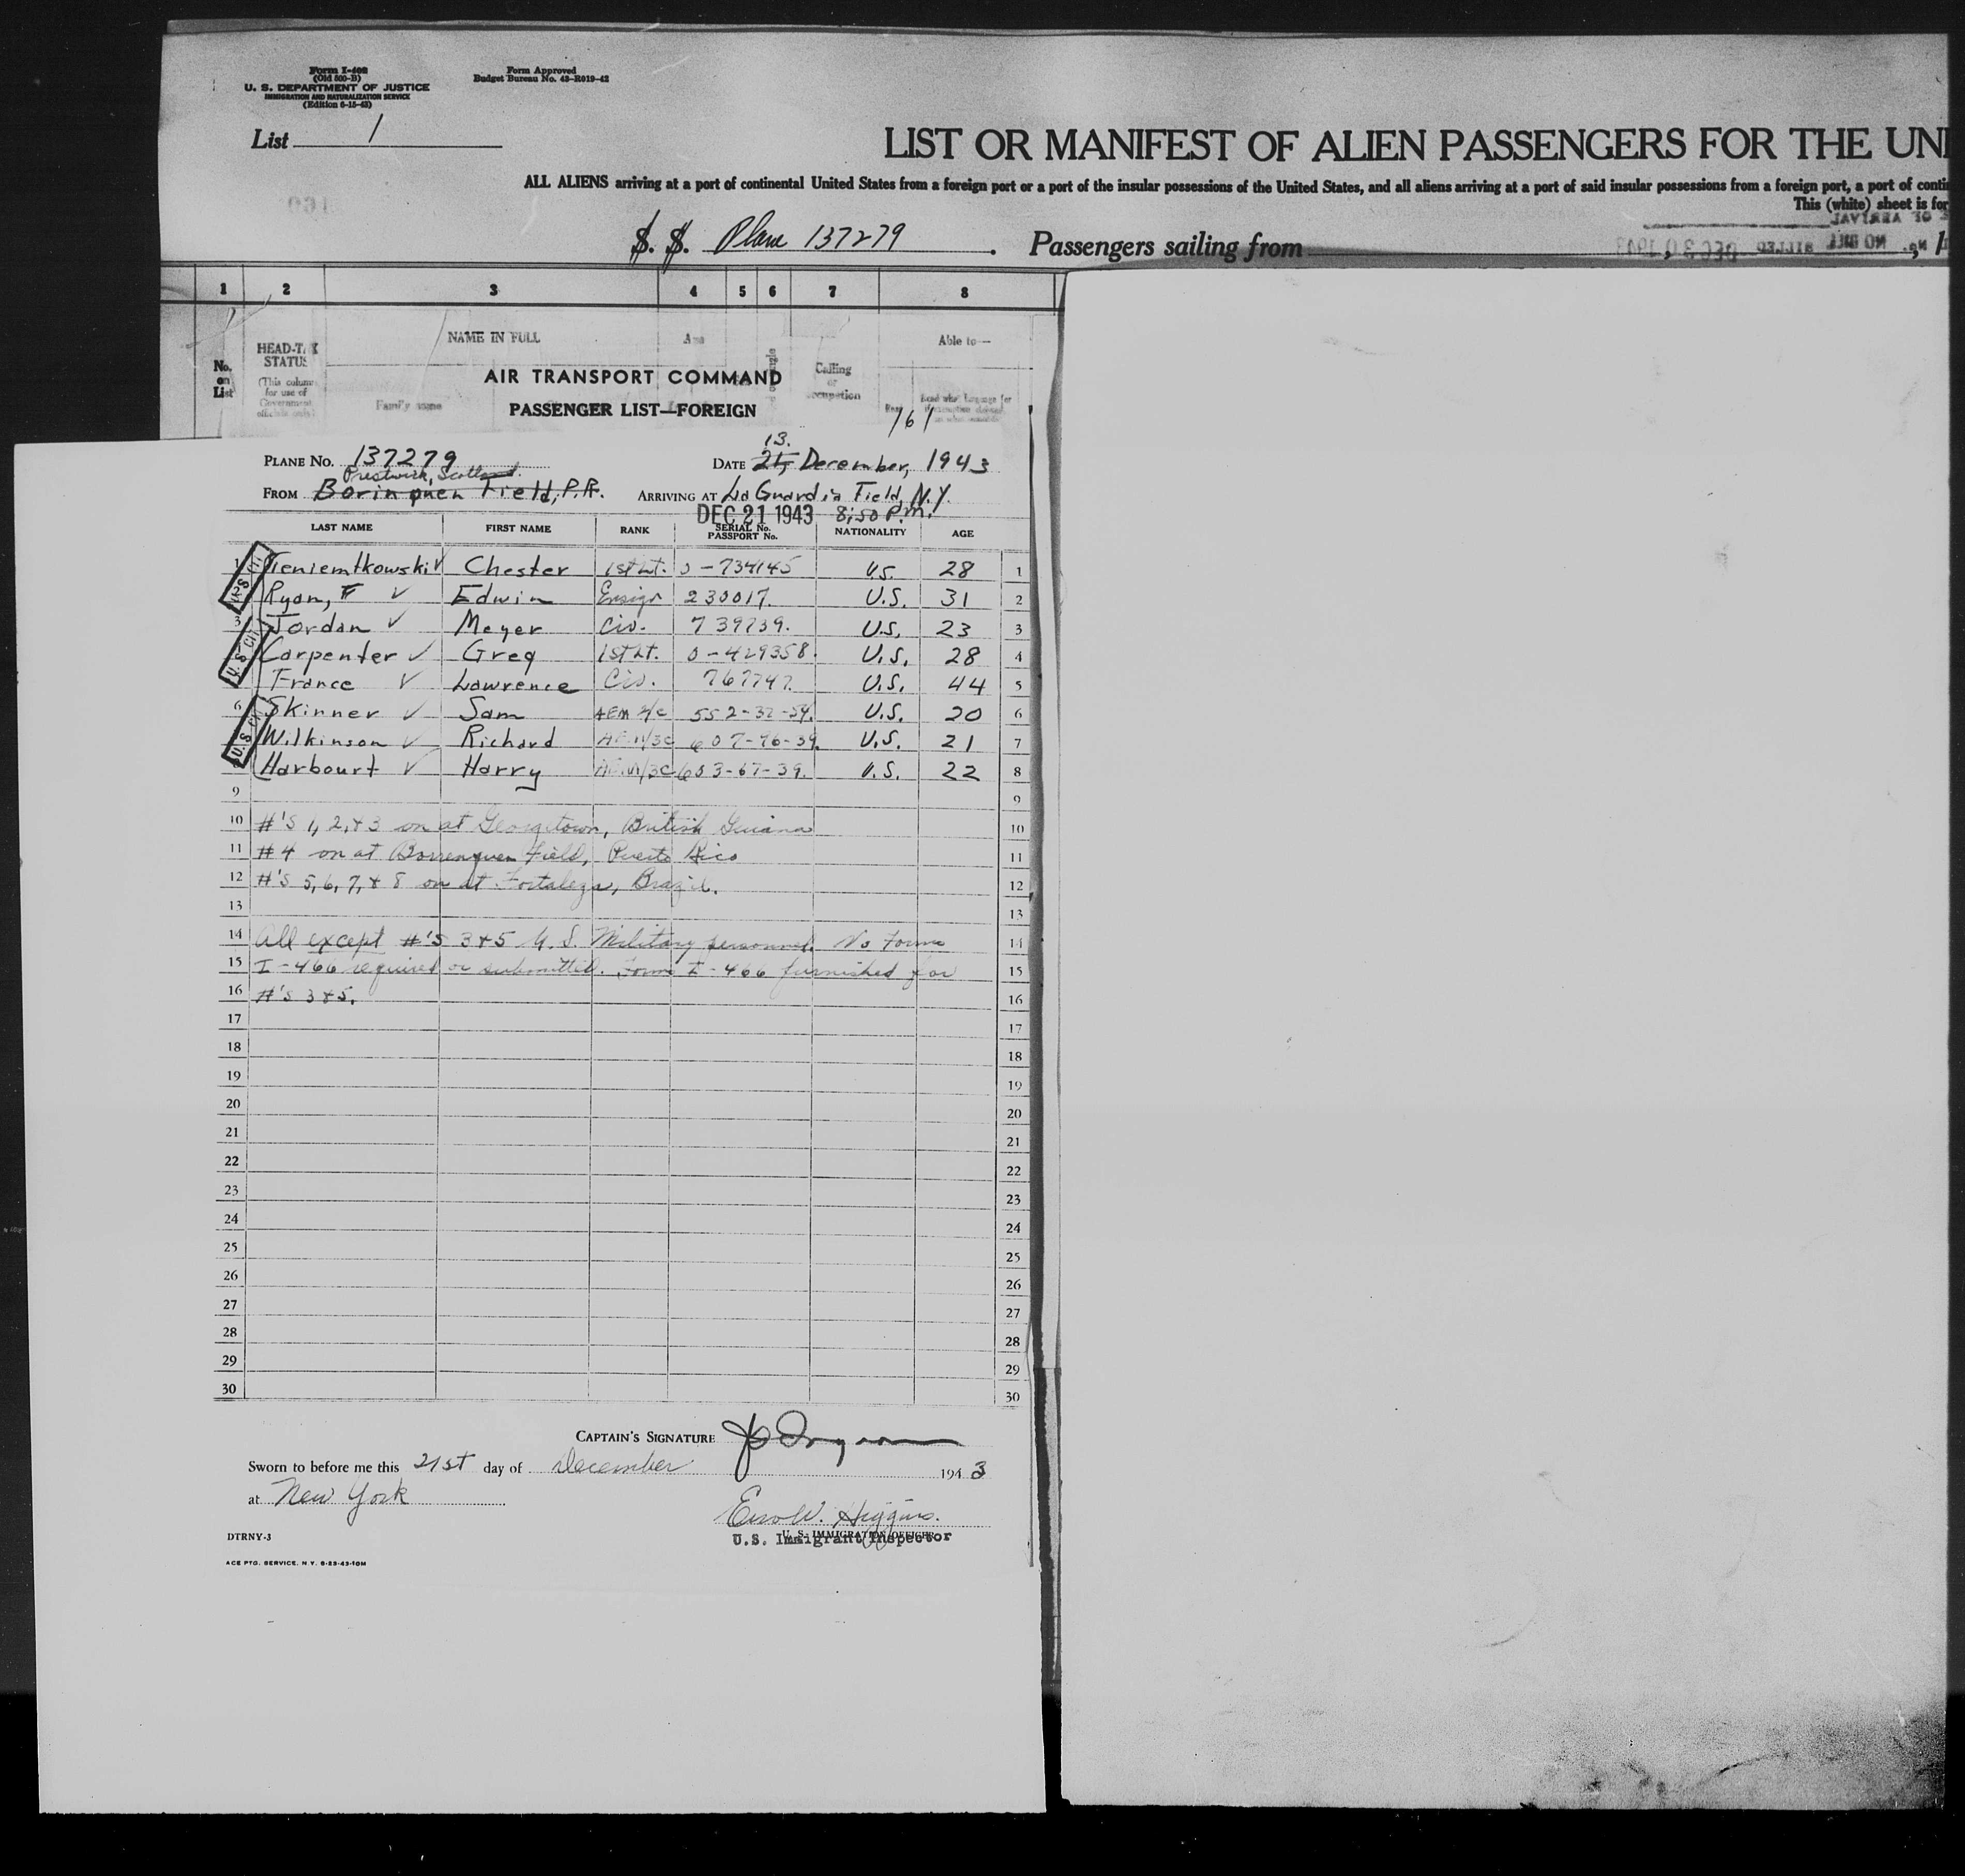 Form I-402
(Old 500-B)
U. S. DEPARTMENT OF JUSTICE
IMMIGRATION AND NATURALIZATION SERVICE
(Edition 6-15-43)
Form Approved
Budget Bureau No. 43-R019-42
List 1
LIST OR MANIFEST OF ALIEN PASSENGERS FOR THE UNI
ALL ALIENS arriving at a port of continental United States from a foreign port or a port of the insular possessions of the United States, and all aliens arriving at a port of said insular possessions from a foreign port, a port of conti
This (white) sheet is for
S. S. Plane 137279. Passengers sailing from
1 2 3 4 5 6 7 8
No. on List
HEAD-TAX STATUS
(This column for use of Government officials only)
NAME IN FULL
Family name
Calling or occupation
Able to—
Read
AIR TRANSPORT COMMAND
PASSENGER LIST—FOREIGN
161
PLANE NO. 137279
DATE 21, 13. December, 1943
Prestwick, Scotland.
FROM Borinquen Field, P.R. ARRIVING AT La Guardia Field, N.Y.
DEC 21 1943 8:50 P.m.
LAST NAME FIRST NAME RANK SERIAL No. PASSPORT No. NATIONALITY AGE
1 Chester 1st Lt. 0-734145 U.S. 28 1
Ryan, F ✓ Edwin Ensign 230017. U.S. 31 2
3 Jordan ✓ Meyer Civ. 739739. U.S. 23 3
Carpenter ✓ Greg 1st Lt. 0-429358. U.S. 28 4
France ✓ Lawrence Civ. 767747. U.S. 44 5
6 Skinner ✓ Sam 552-32-54. U.S. 20 6
Wilkinson ✓ Richard 607-76-39. U.S. 21 7
Harbourt ✓ Harry 603-67-39. U.S. 22 8
9 9
10 #'s 1, 2, & 3 on at Georgetown, British Guiana 10
11 #4 on at Borrenquen Field, Puerto Rico 11
12 #'s 5, 6, 7, & 8 on at Fortaleza, Brazil. 12
13 13
14 All except #'s 3 & 5 U.S. Military personnel. No Forms 14
15 I-466 required or submitted. Forms I-466 furnished for 15
16 #'s 3 & 5. 16
17 17
18 18
19 19
20 20
21 21
22 22
23 23
24 24
25 25
26 26
27 27
28 28
29 29
30 30
CAPTAIN'S SIGNATURE
Sworn to before me this 21st day of December 1943
at New York
W. Higgins.
U. S. IMMIGRATION OFFICER
U.S. Immigrant Inspector
DTRNY-3
ACE PTG. SERVICE, N.Y. 6-23-43-10M